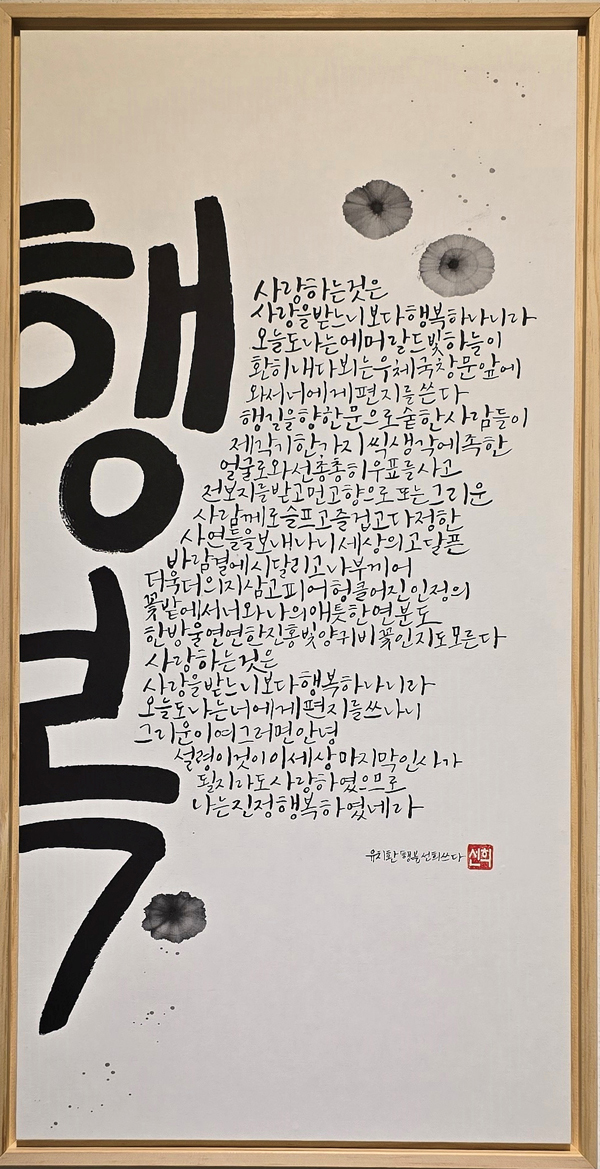 행복
사랑하는것은
사랑을받느니보다행복하나니라
오늘도나는에머랄드빛하늘이
환히내다뵈는우체국창문앞에
와서너에게편지를쓴다
행길을향한문으로숱한사람들이
제각기한가지씩생각에족한
얼굴로와선총총히우표를사고
전보지를받고먼고향으로또는그리운
사람께로슬프고즐겁고다정한
사연들을보내나니세상의고달픈
바람결에시달리고나부끼어
더욱더의지삼고피어헝클어진인정의
꽃밭에서너와나의애틋한연분도
한방울연연한진홍빛양귀비꽃인지도모른다
사랑하는것은
사랑을받느니보다행복하나니라
오늘도나는너에게편지를쓰나니
그리운이여그러면안녕
설령이것이이세상마지막인사가
될지라도사랑하였으므로
나는진정행복하였네라
유치환 행복 선희쓰다 선희